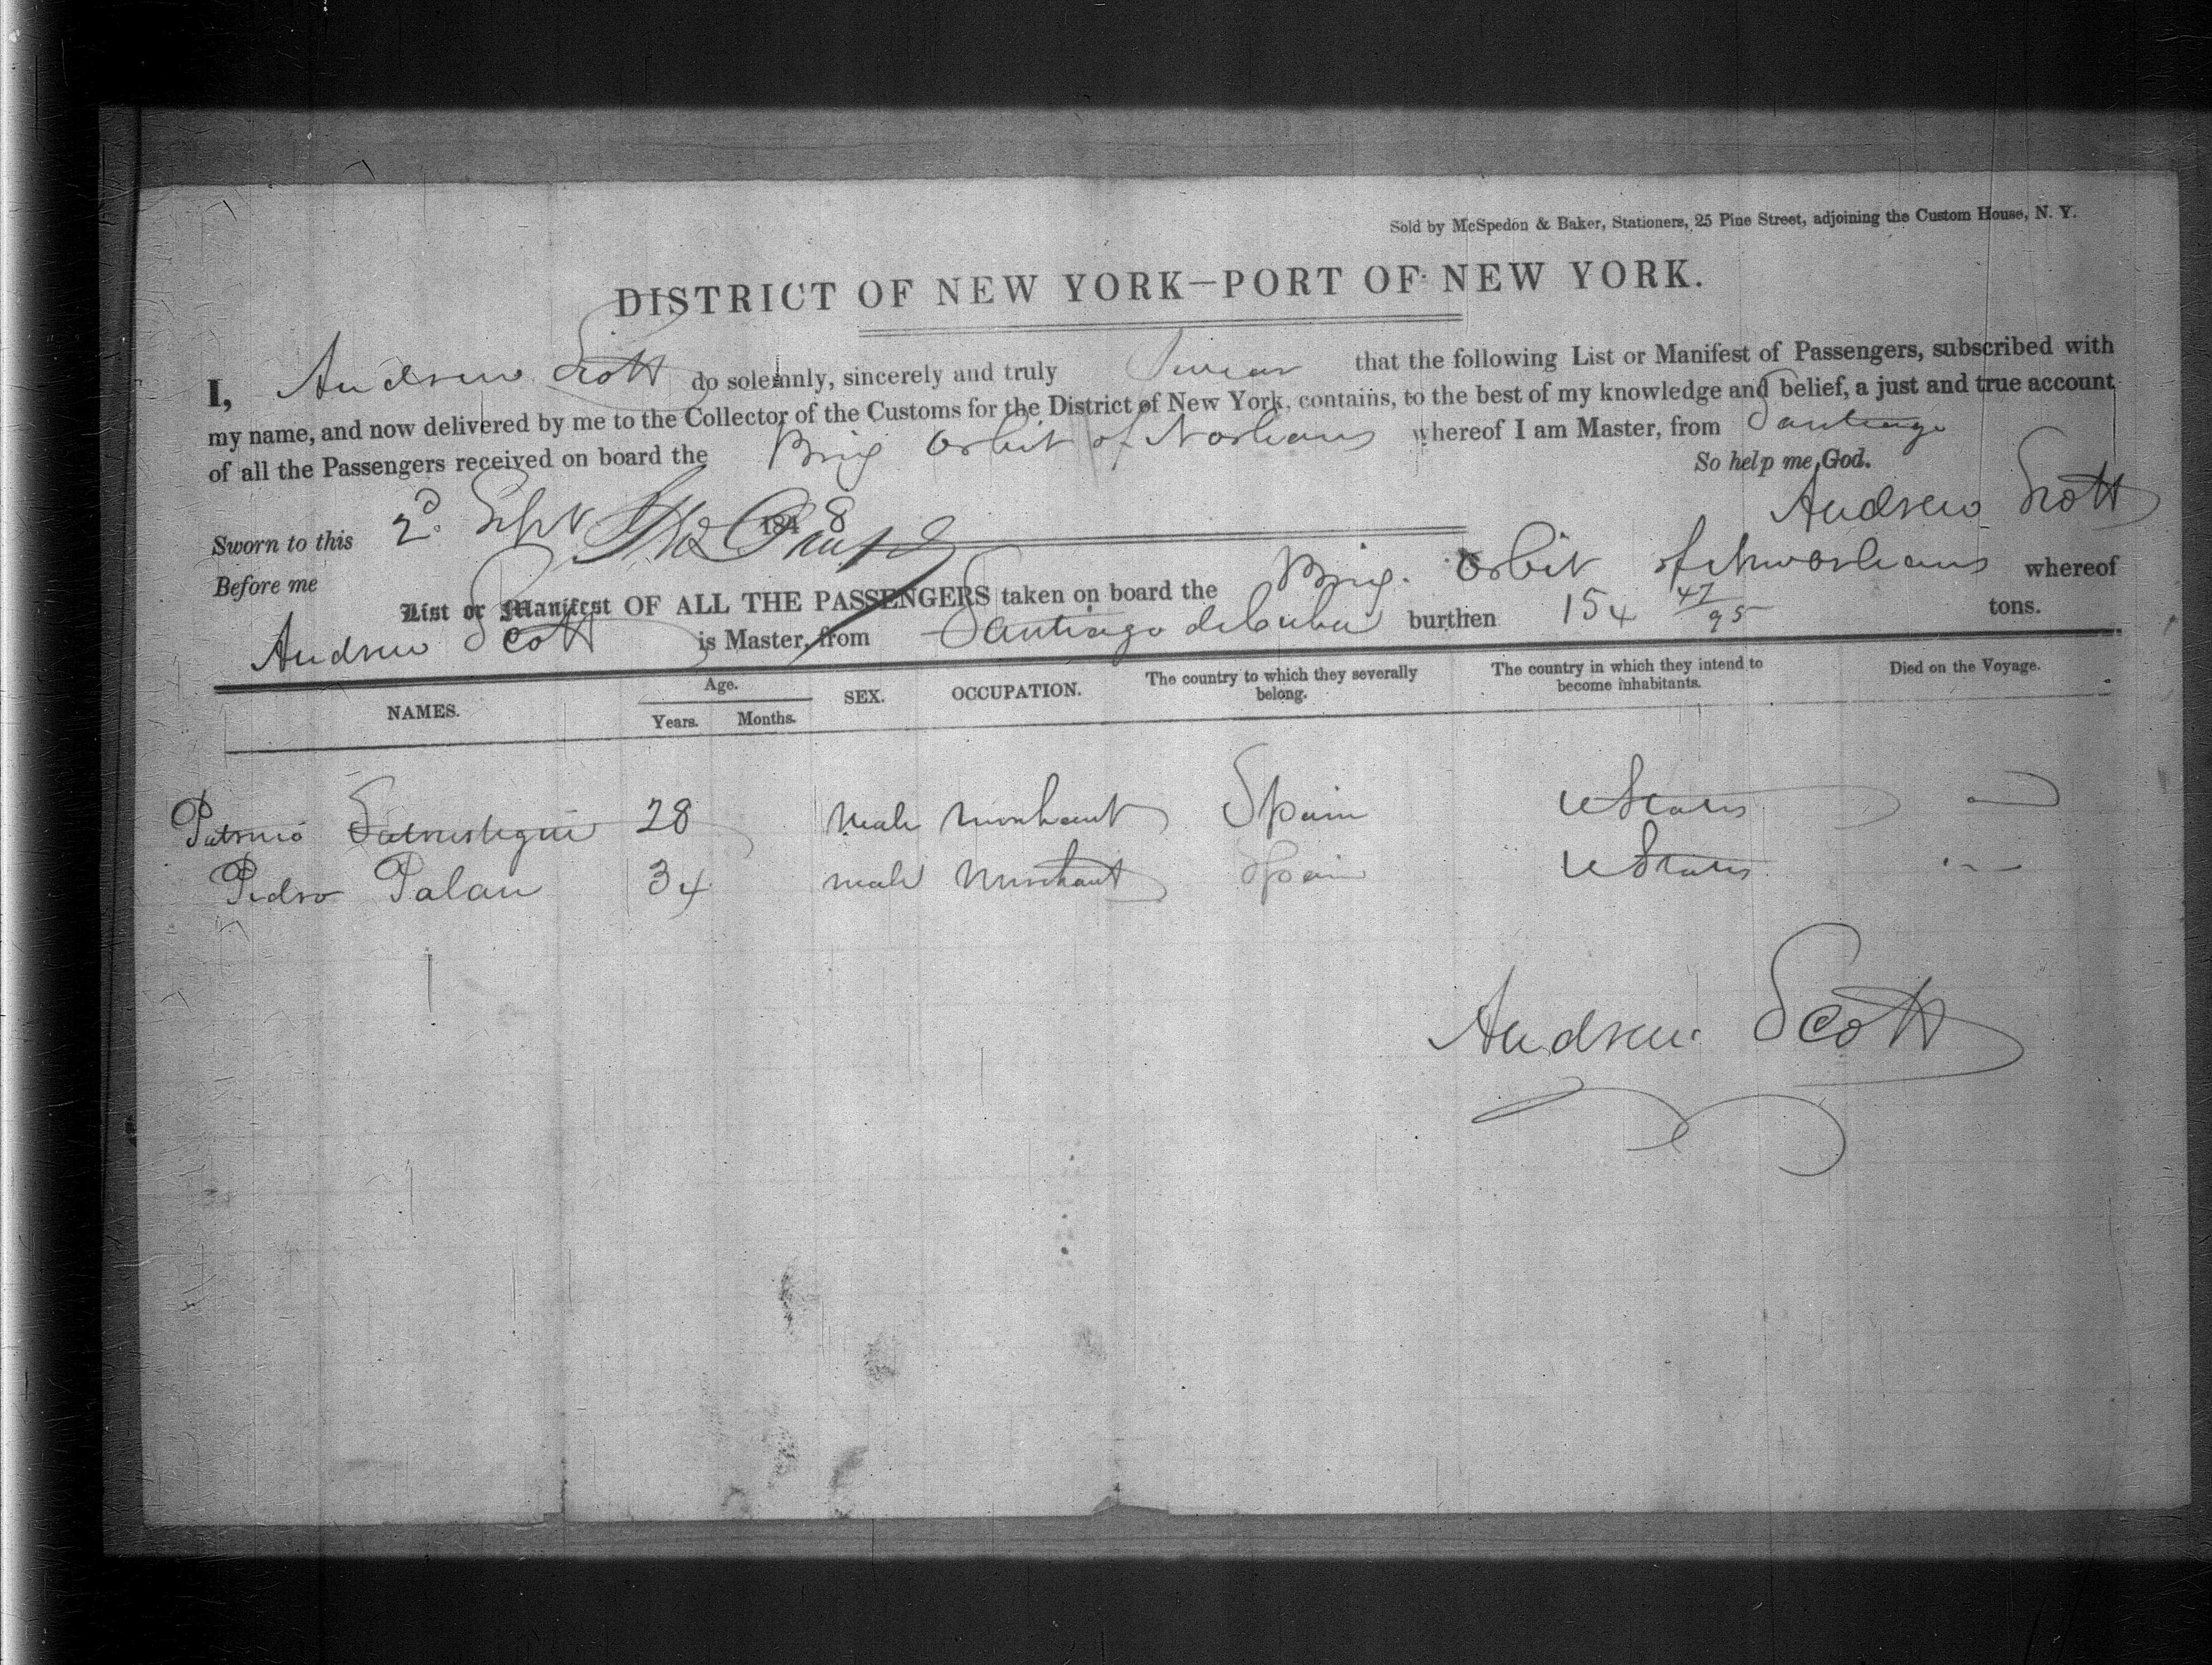 Sold by McSpedon & Baker, Stationers, 25 Pine Street, adjoining the Custom House, N. Y.
DISTRICT OF NEW YORK—PORT OF NEW YORK.
I, Andrew Scott do solemnly, sincerely and truly Swear that the following List or Manifest of Passengers, subscribed with
my name, and now delivered by me to the Collector of the Customs for the District of New York, contains, to the best of my knowledge and belief, a just and true account
of all the Passengers received on board the Brig Orbit of Norleans whereof I am Master, from Santiago
So help me God.
Sworn to this 2d Sept 1848 Andrew Scott
Before me
List or Manifest OF ALL THE PASSENGERS taken on board the Brig. Orbit of Nworleans whereof
Andrew Scott is Master, from Santiago de Cuba burthen 154 47/95 tons.
NAMES. Age. Years. Months. SEX. OCCUPATION. The country to which they severally belong. The country in which they intend to become inhabitants. Died on the Voyage.
28 male merchant Spain UStates
Pedro Palau 34 male merchant Spain UStates
Andrew Scott